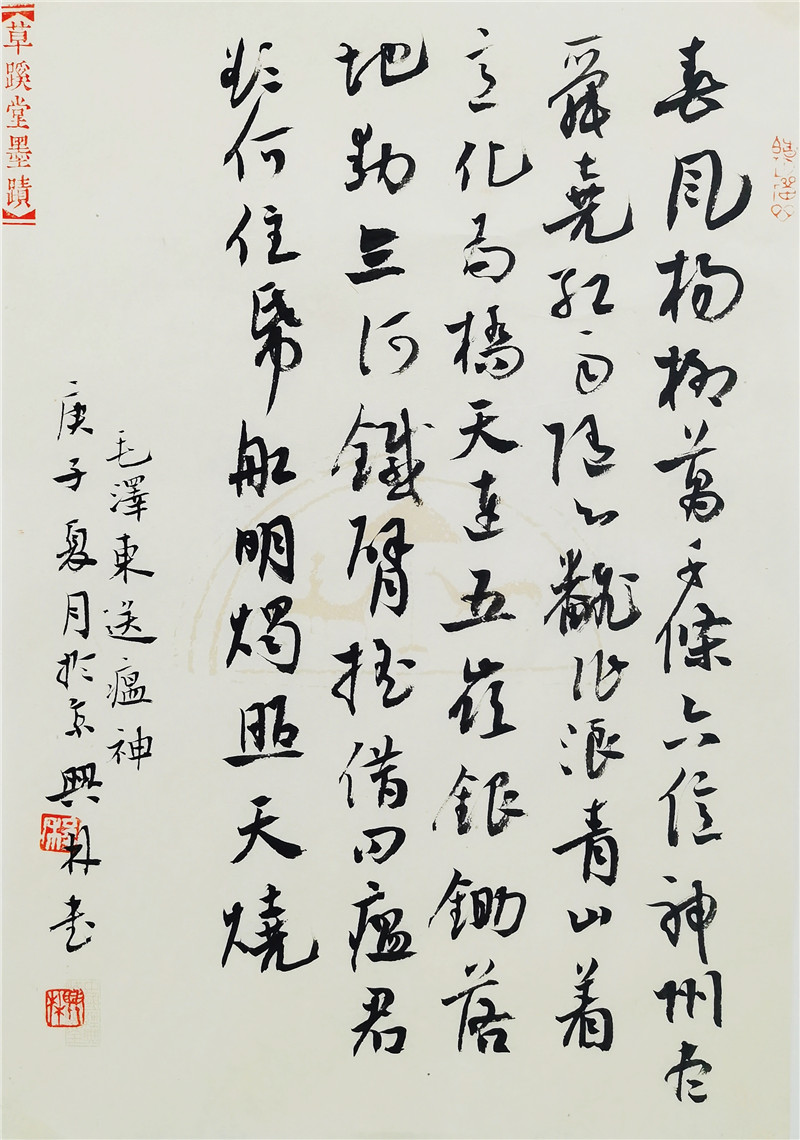 春风杨柳萬千條六億神州尽
舜堯红雨随心翻作浪青山着
意化为橋天連五嶺銀鋤落
地動三河鐵臂摇借问瘟君
欲何往帋船明燭照天燒
毛澤東送瘟神
庚子夏月於京興林书
草蹊堂墨蹟